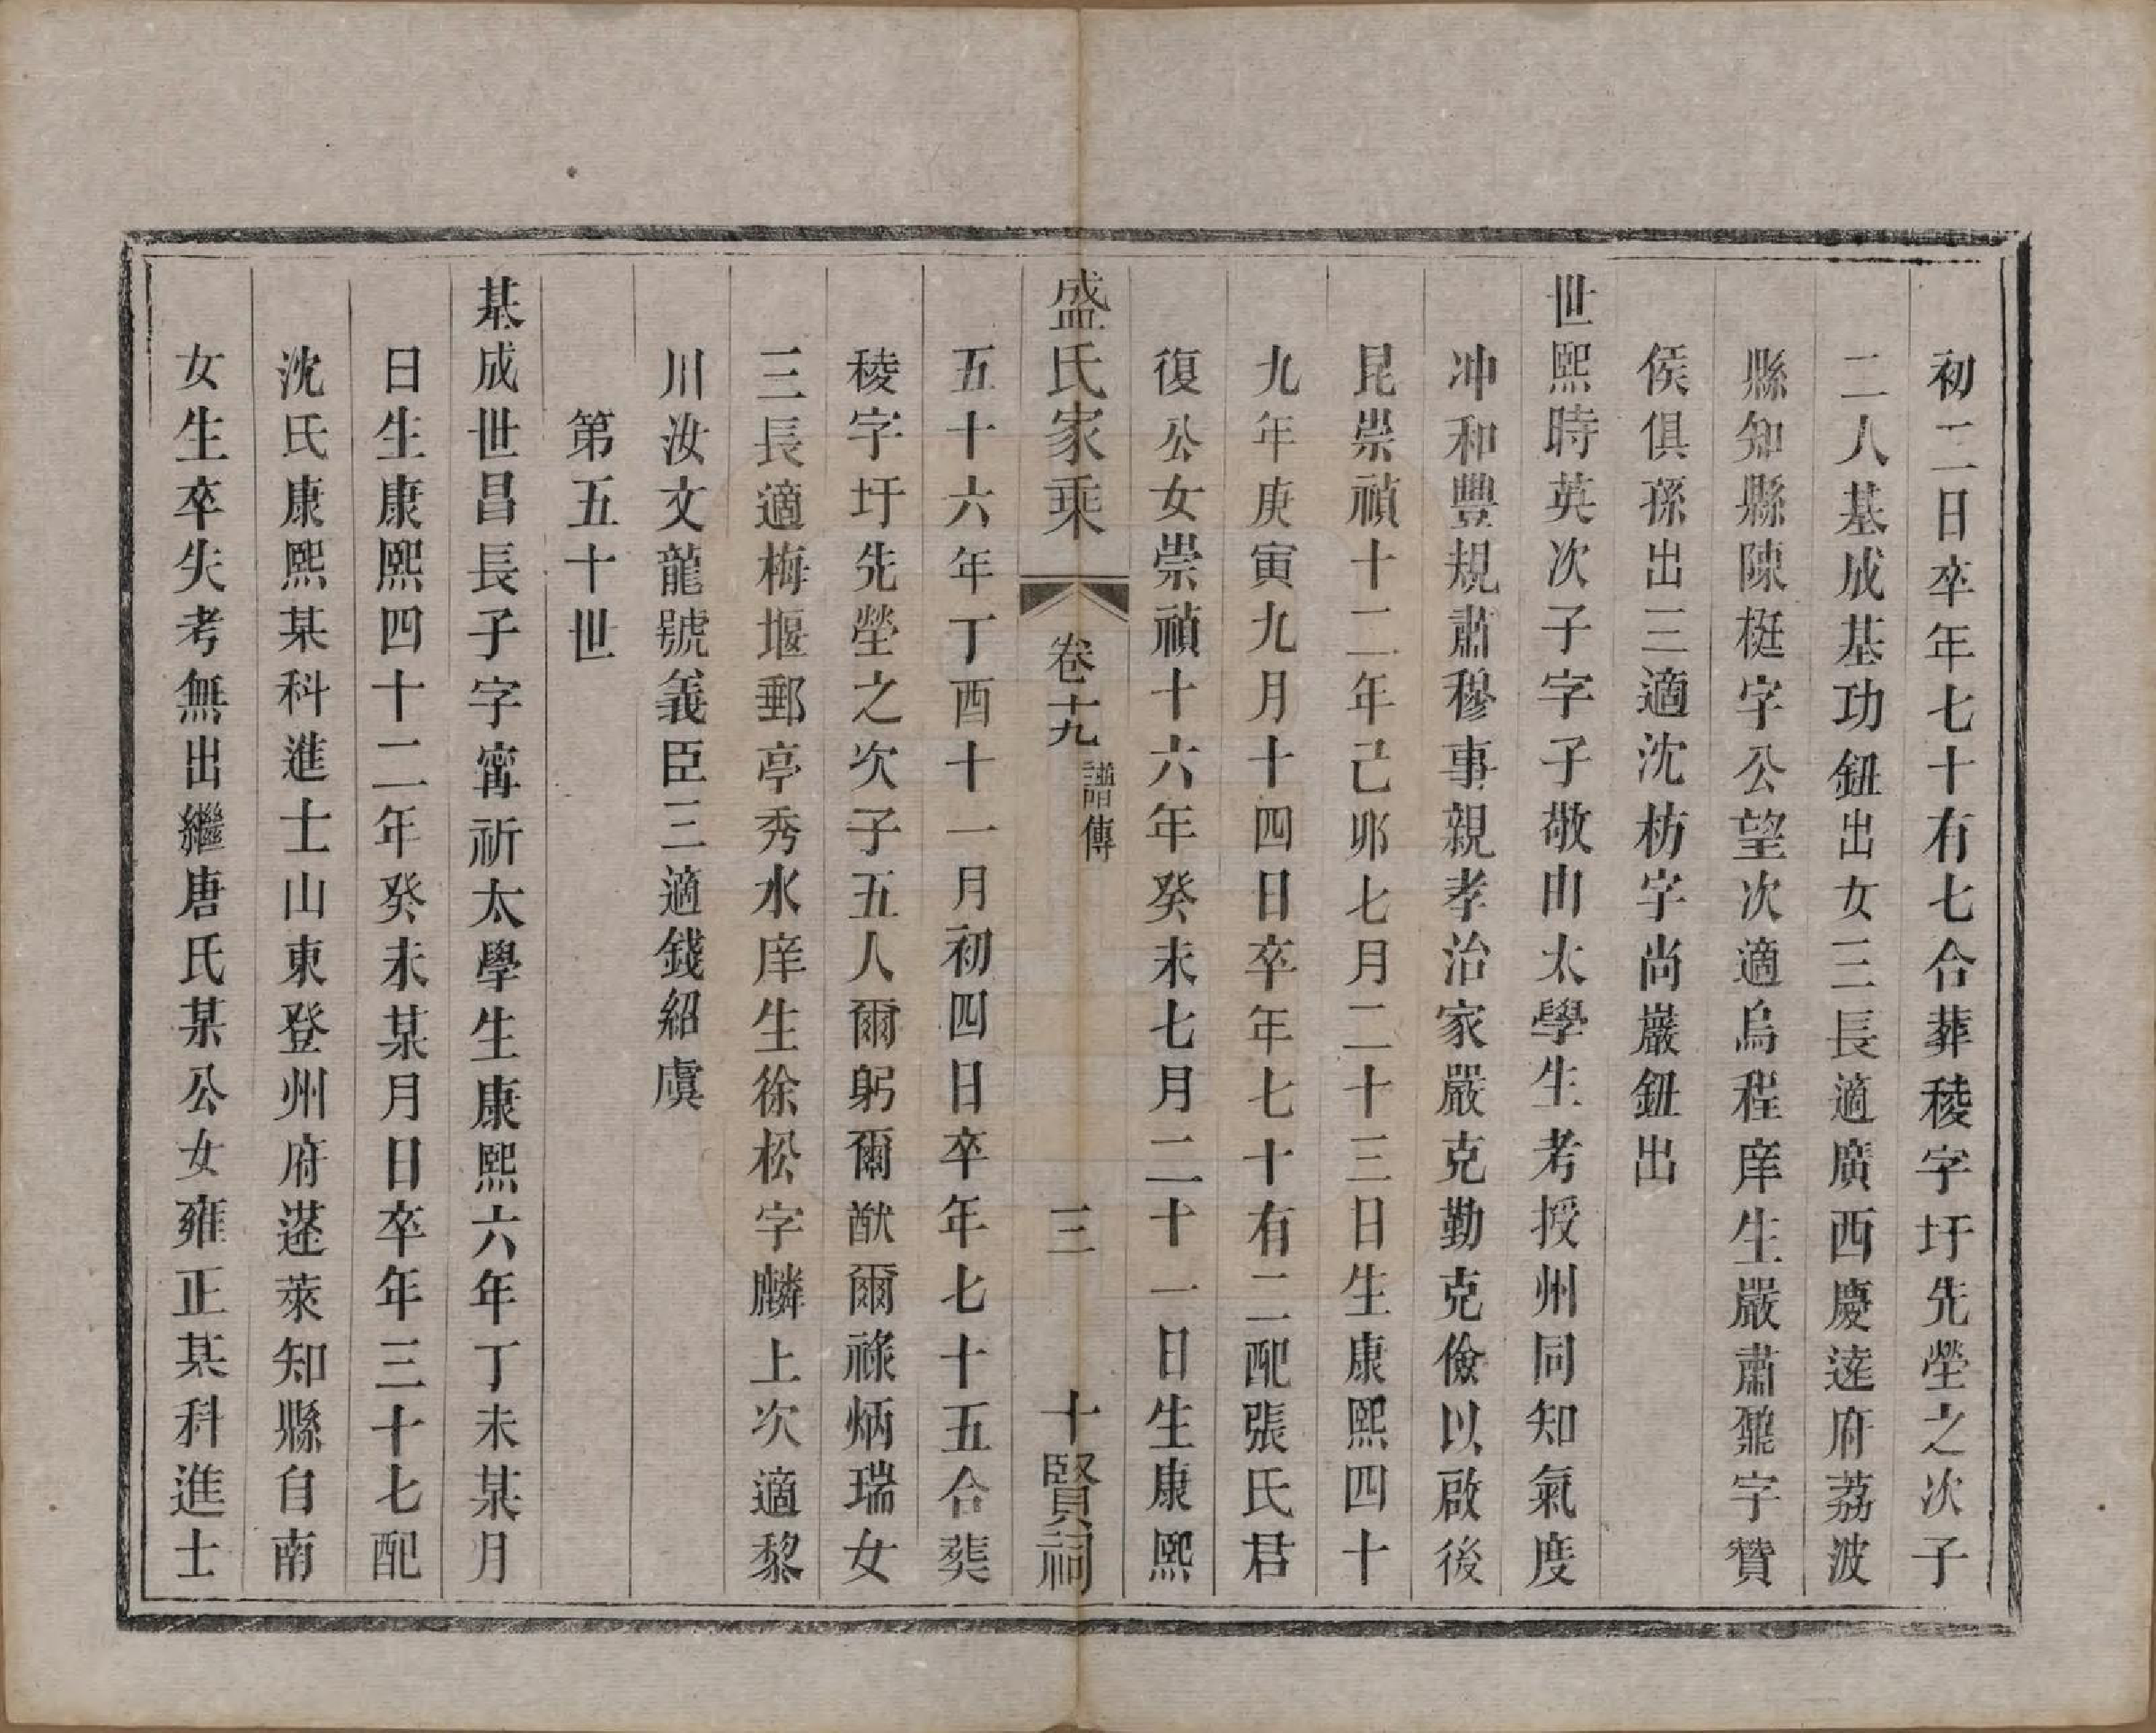 初二日卒年七十有七合葬稜字圩先塋之次子
二人基成基功鈕出女三長適廣西慶逹府荔波
縣知縣陳梃字公望次適烏程庠生嚴肅鼐字贊
侯俱孫出三適沈枋字尚嚴鈕出
世熙時英次子字子敬由太學生考授州同知氣度
冲和豐規肅穆事親孝治家嚴克勤克儉以啟後
昆崇禎十二年己夘七月二十三日生康熙四十
九年庚寅九月十四日卒年七十有二配張氏君
復公女崇禎十六年癸未七月二十一日生康熙
盛氏家乘 卷十九 譜傳 三 十賢祠
五十六年丁酉十一月初四日卒年七十五合葬
稜字圩先塋之次子五人爾躬爾猷爾祿炳瑞女
三長適梅堰郵亭秀水庠生徐松字麟上次適黎
川汝文龍號義臣三適錢紹虞
第五十世
基成世昌長子字甯祈太學生康熙六年丁未某月
日生康熙四十二年癸未某月日卒年三十七配
沈氏康熙某科進士山東登州府蓬萊知縣自南
女生卒失考無出繼唐氏某公女雍正某科進士